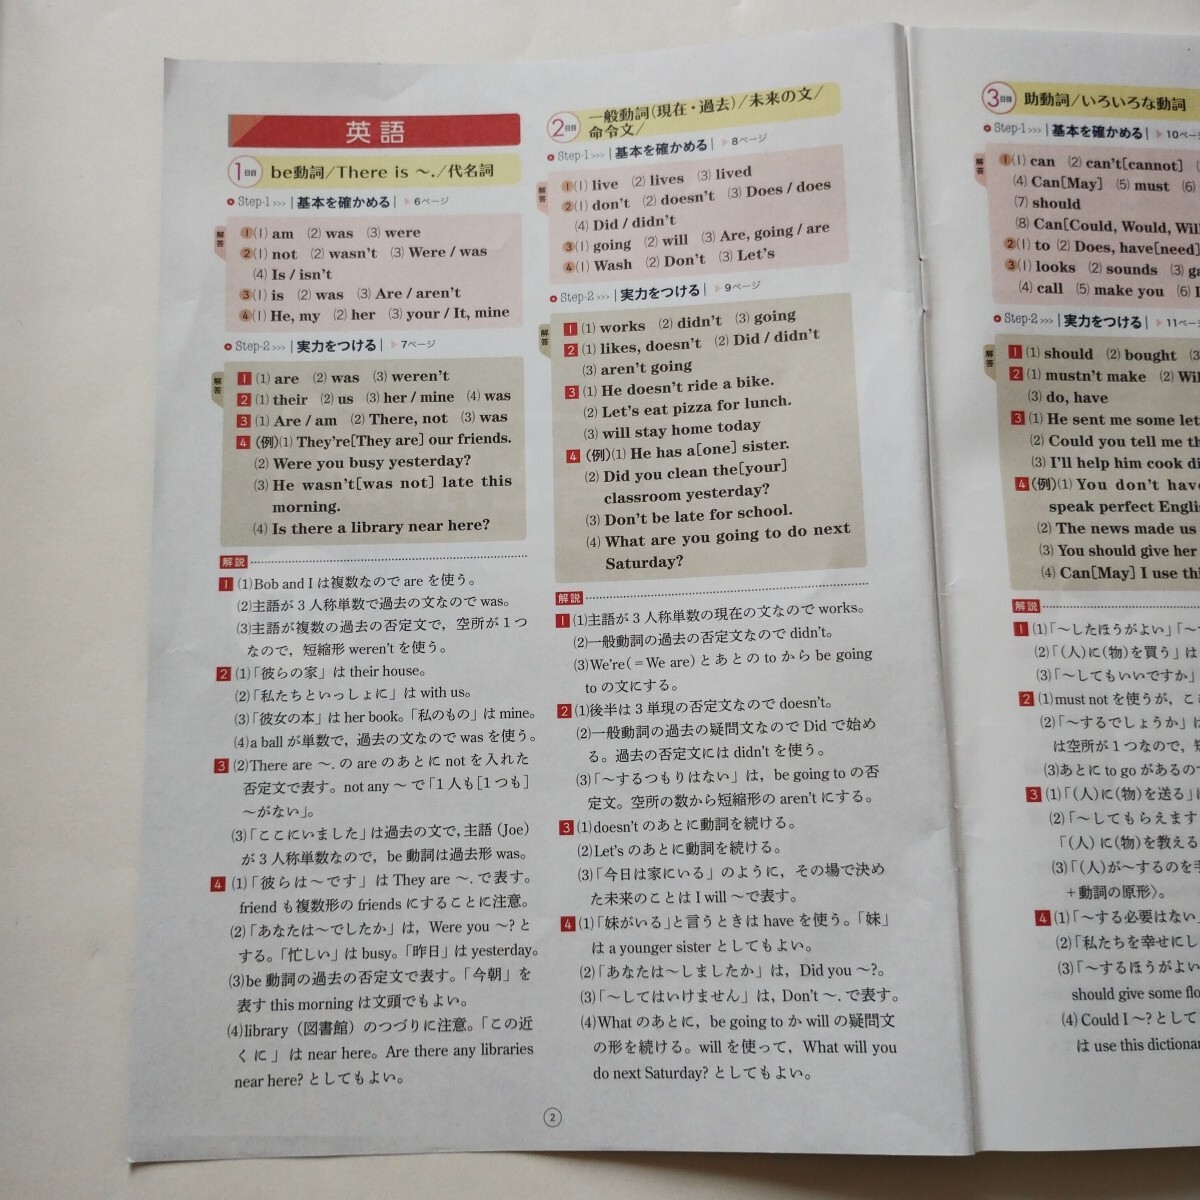 英語
1日目 be動詞/There is ～./代名詞
Step-1>>> |基本を確かめる| ▶6ページ
解答
❶(1) am (2) was (3) were
❷(1) not (2) wasn't (3) Were / was
(4) Is / isn't
❸(1) is (2) was (3) Are / aren't
❹(1) He, my (2) her (3) your / It, mine
Step-2>>> |実力をつける| ▶7ページ
解答
1 (1) are (2) was (3) weren't
2 (1) their (2) us (3) her / mine (4) was
3 (1) Are / am (2) There, not (3) was
4 (例)(1) They're[They are] our friends.
(2) Were you busy yesterday?
(3) He wasn't[was not] late this
morning.
(4) Is there a library near here?
解説
1 (1)Bob and I は複数なので are を使う。
(2)主語が3人称単数で過去の文なので was。
(3)主語が複数の過去の否定文で，空所が1つ
なので，短縮形 weren't を使う。
2 (1)「彼らの家」は their house。
(2)「私たちといっしょに」は with us。
(3)「彼女の本」は her book。「私のもの」は mine。
(4)a ball が単数で，過去の文なので was を使う。
3 (2)There are ～. の are のあとに not を入れた
否定文で表す。not any ～ で「1人も[1つも]
～がない」。
(3)「ここにいました」は過去の文で，主語(Joe)
が3人称単数なので，be動詞は過去形 was。
4 (1)「彼らは～です」は They are ～. で表す。
friend も複数形の friends にすることに注意。
(2)「あなたは～でしたか」は，Were you ～? と
する。「忙しい」は busy。「昨日」は yesterday。
(3)be 動詞の過去の否定文で表す。「今朝」を
表す this morning は文頭でもよい。
(4)library（図書館）のつづりに注意。「この近
くに」は near here。Are there any libraries
near here? としてもよい。
2日目 一般動詞(現在・過去)/未来の文/
命令文/
Step-1>>> |基本を確かめる| ▶8ページ
解答
❶(1) live (2) lives (3) lived
❷(1) don't (2) doesn't (3) Does / does
(4) Did / didn't
❸(1) going (2) will (3) Are, going / are
❹(1) Wash (2) Don't (3) Let's
Step-2>>> |実力をつける| ▶9ページ
解答
1 (1) works (2) didn't (3) going
2 (1) likes, doesn't (2) Did / didn't
(3) aren't going
3 (1) He doesn't ride a bike.
(2) Let's eat pizza for lunch.
(3) will stay home today
4 (例)(1) He has a[one] sister.
(2) Did you clean the[your]
classroom yesterday?
(3) Don't be late for school.
(4) What are you going to do next
Saturday?
解説
1 (1)主語が3人称単数の現在の文なので works。
(2)一般動詞の過去の否定文なので didn't。
(3)We're(＝We are)とあとの to から be going
to の文にする。
2 (1)後半は3単現の否定文なので doesn't。
(2)一般動詞の過去の疑問文なので Did で始め
る。過去の否定文には didn't を使う。
(3)「～するつもりはない」は，be going to の否
定文。空所の数から短縮形の aren't にする。
3 (1)doesn't のあとに動詞を続ける。
(2)Let's のあとに動詞を続ける。
(3)「今日は家にいる」のように，その場で決め
た未来のことは I will ～で表す。
4 (1)「妹がいる」と言うときは have を使う。「妹」
は a younger sister としてもよい。
(2)「あなたは～しましたか」は，Did you ～?。
(3)「～してはいけません」は，Don't ～. で表す。
(4)What のあとに，be going to か will の疑問文
の形を続ける。will を使って，What will you
do next Saturday? としてもよい。
2
3日目 助動詞/いろいろな動詞
Step-1>>> |基本を確かめる| ▶10ページ
解答
❶(1) can (2) can't[cannot]
(4) Can[May] (5) must (6)
(7) should
(8) Can[Could, Would, Wil
❷(1) to (2) Does, have[need]
❸(1) looks (2) sounds (3) ga
(4) call (5) make you (6) I
Step-2>>> |実力をつける| ▶11ページ
解答
1 (1) should (2) bought (3)
2 (1) mustn't make (2) Wil
(3) do, have
3 (1) He sent me some let
(2) Could you tell me th
(3) I'll help him cook di
4 (例)(1) You don't hav
speak perfect Englis
(2) The news made us
(3) You should give her
(4) Can[May] I use thi
解説
1 (1)「～したほうがよい」「～
(2)「(人)に(物)を買う」は
(3)「～してもいいですか」
2 (1)must not を使うが，こ
(2)「～するでしょうか」は
は空所が1つなので，短
(3)あとに to go があるので
3 (1)「(人)に(物)を送る」は
(2)「～してもらえます
「(人)に(物)を教える
(3)「(人)が～するのを手
＋動詞の原形〉。
4 (1)「～する必要はない」
(2)「私たちを幸せにし
(3)「～するほうがよい
should give some flo
(4) Could I ～? として
は use this dictionar